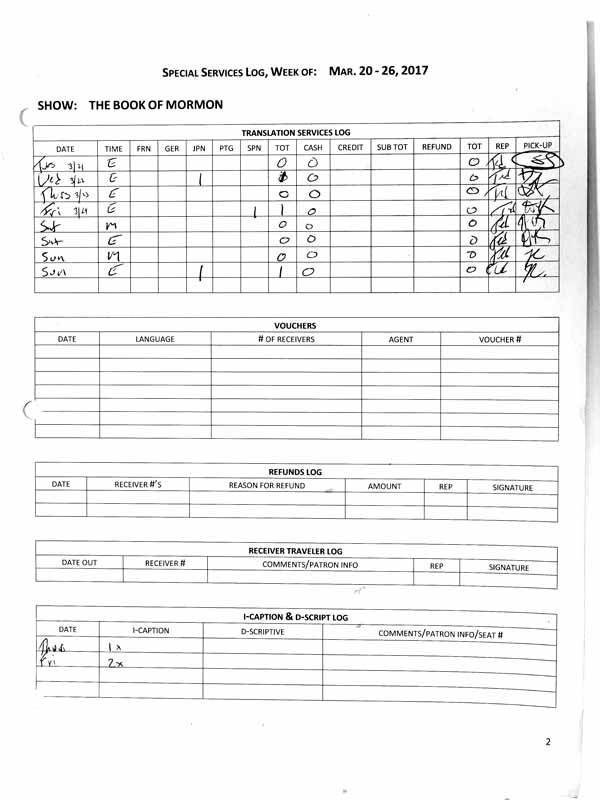 SPECIAL SERVICES LOG, WEEK OF: MAR. 20 - 26, 2017
SHOW: THE BOOK OF MORMON
TRANSLATION SERVICES LOG
DATE TIME FRN GER JPN PTG SPN TOT CASH CREDIT SUB TOT REFUND TOT REP PICK-UP
Tus 3/21 E 0 0 0 Ted
Wed 3/22 E 1 0 0 Ted
Thus 3/23 E 0 0 0 Ted
Fri 3/24 E 1 1 0 0 Ted
Sat M 0 0 0 Ted
Sat E 0 0 0 Ted
Sun M 0 0 0 Ted
Sun E 1 1 0 0 Ted
VOUCHERS
DATE LANGUAGE # OF RECEIVERS AGENT VOUCHER #
REFUNDS LOG
DATE RECEIVER #'S REASON FOR REFUND AMOUNT REP SIGNATURE
RECEIVER TRAVELER LOG
DATE OUT RECEIVER # COMMENTS/PATRON INFO REP SIGNATURE
I-CAPTION & D-SCRIPT LOG
DATE I-CAPTION D-SCRIPTIVE COMMENTS/PATRON INFO/SEAT #
Thus 1x
Fri 2x
2